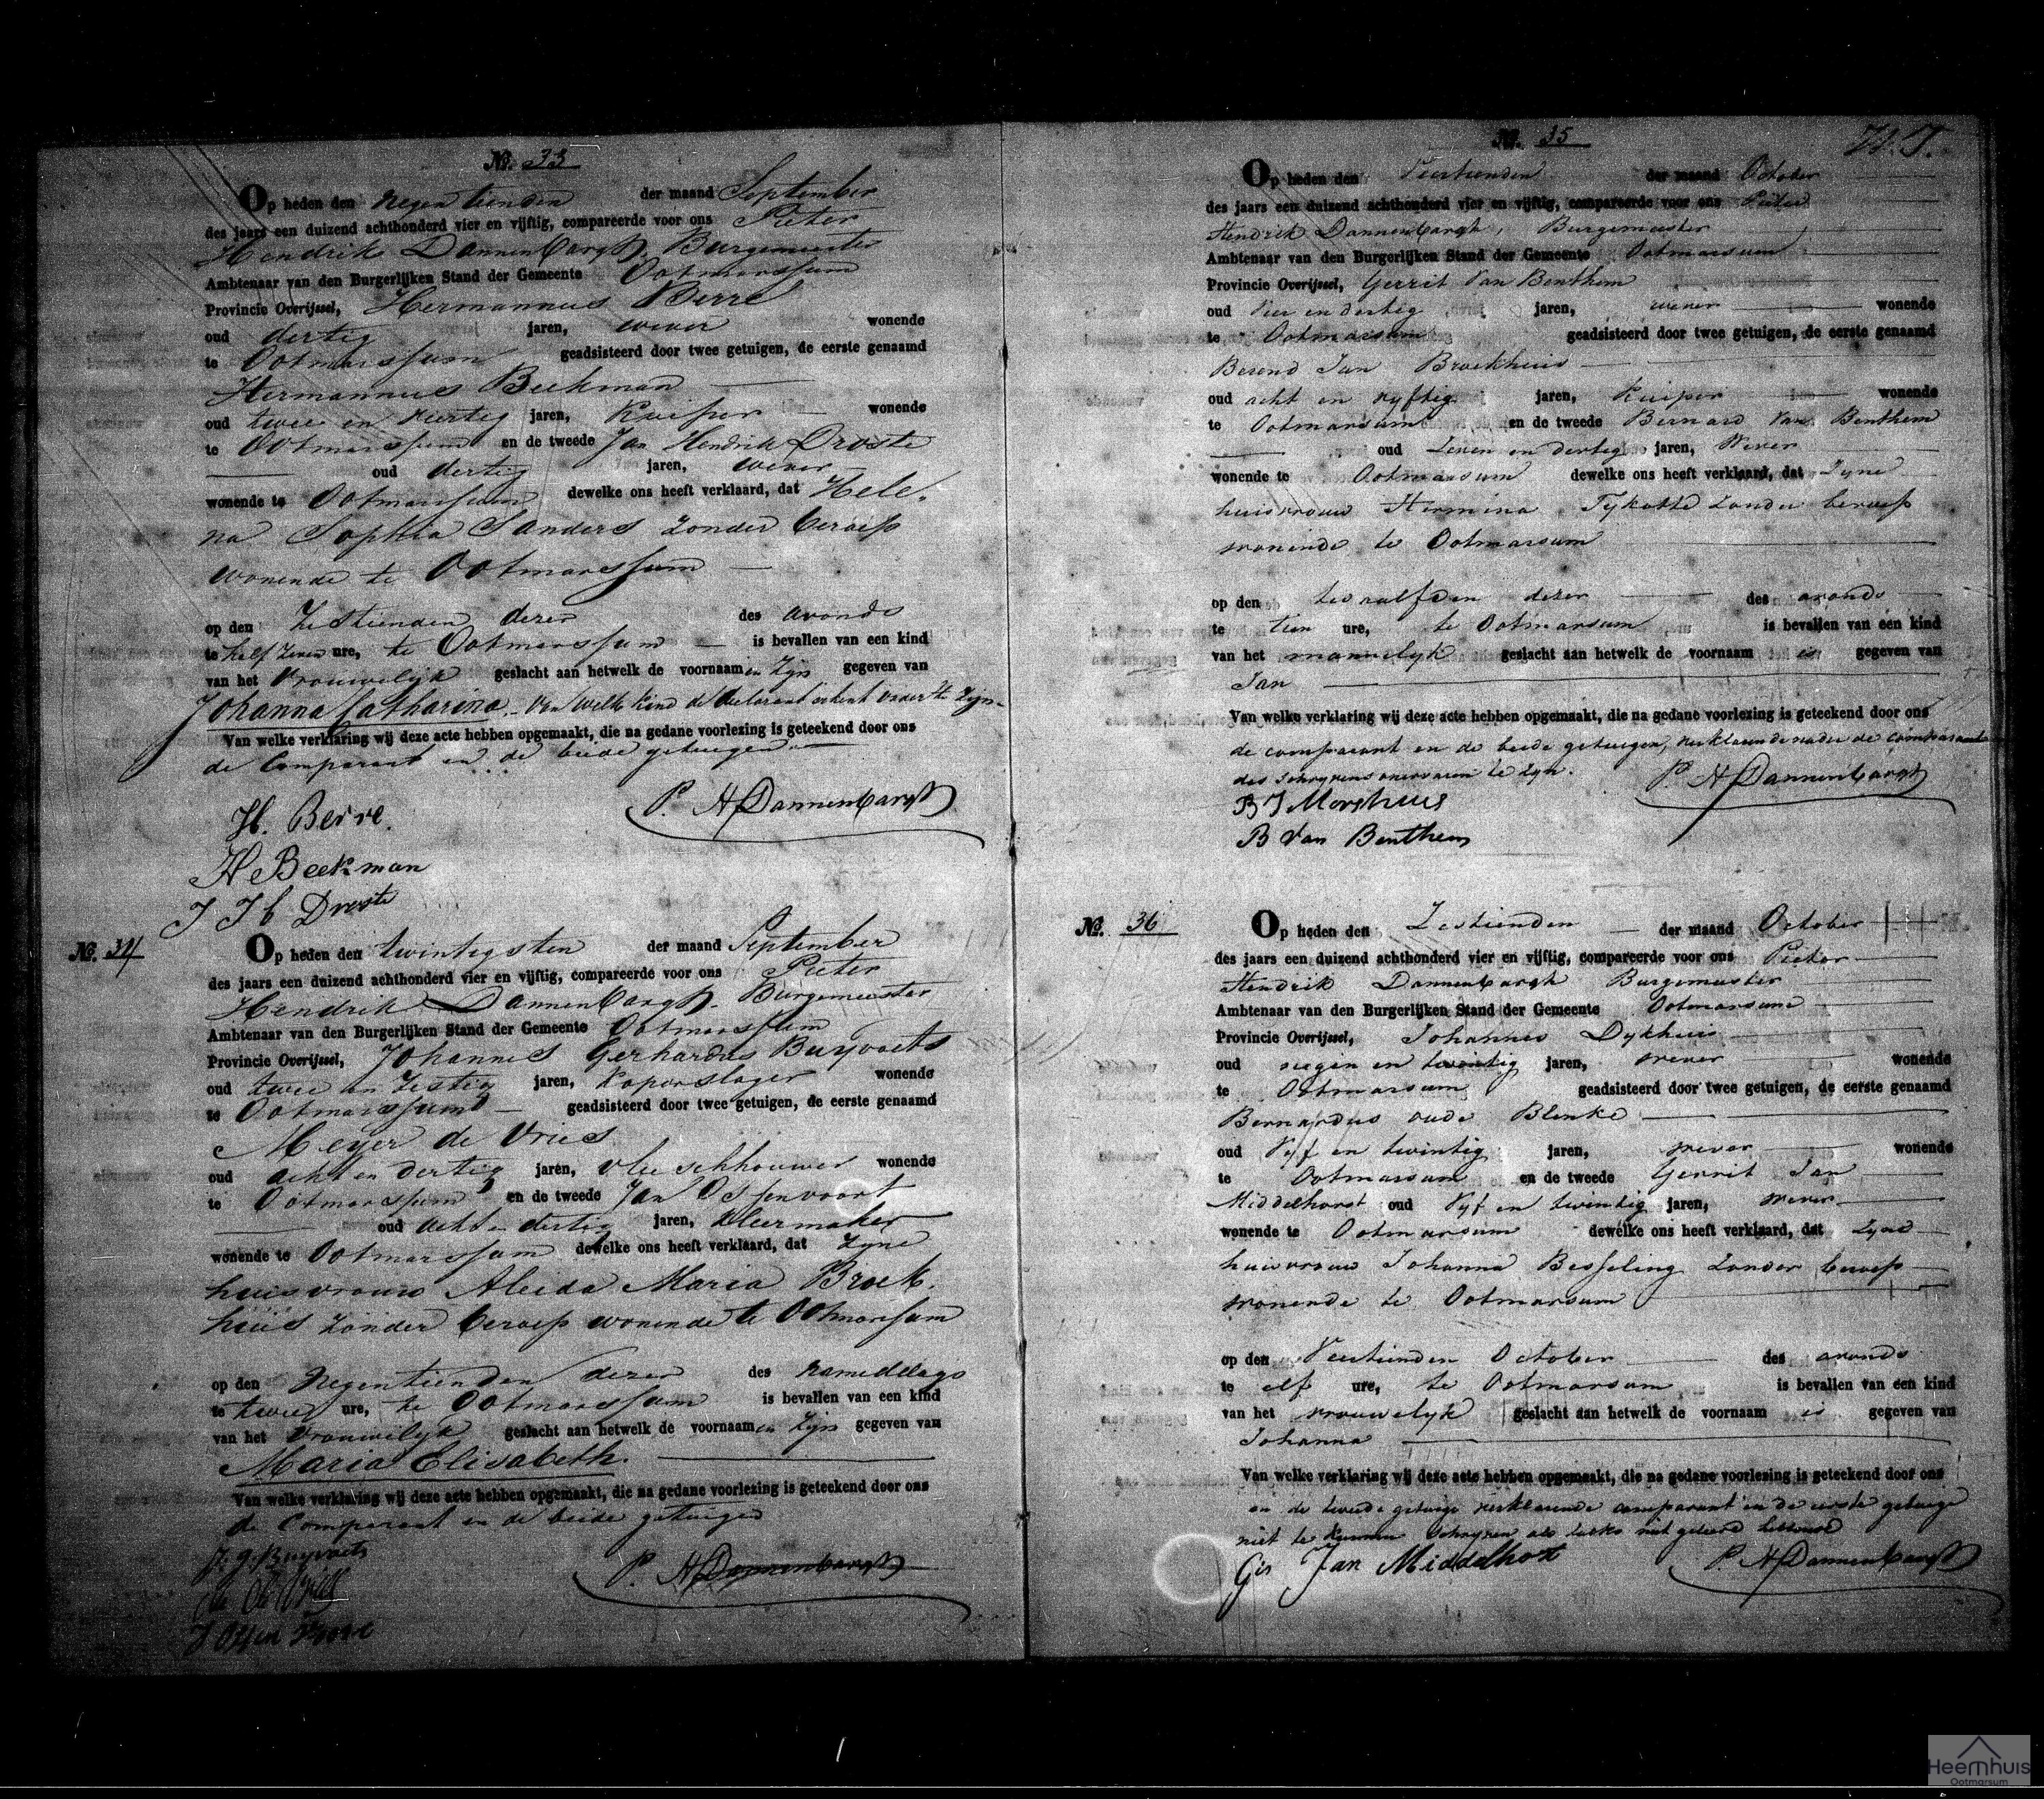 No. 33
Op heden den negentienden der maand September
des jaars een duizend achthonderd vier en vijftig, compareerde voor ons Pieter
Hendrik Dannenbargh, Burgemeester
Ambtenaar van den Burgerlijken Stand der Gemeente Ootmarssum
Provincie Overijssel, Hermannus Berre
oud dertig jaren, wever wonende
te Ootmarssum geadsisteerd door twee getuigen, de eerste genaamd
Hermannus Beekman
oud twee en veertig jaren, Kuiper wonende
te Ootmarssum en de tweede Jan Hendrik Droste
oud dertig jaren, wever
wonende te Ootmarssum dewelke ons heeft verklaard, dat Hele-
na Sophia Sanders zonder beroep
wonende te Ootmarssum
op den zestienden dezer des avonds
te half zeven ure, te Ootmarssum is bevallen van een kind
van het vrouwelijk geslacht aan hetwelk de voornaamen zijn gegeven van
Johanna Catharina. Van welk kind de declarant erkent vader te zijn.
Van welke verklaring wij deze acte hebben opgemaakt, die na gedane voorlezing is geteekend door ons
de Comparant en de beide getuigen
P. H Dannenbargh
H. Berre.
H Beekman
J H Droste
No. 34
Op heden den twintigsten der maand September
des jaars een duizend achthonderd vier en vijftig, compareerde voor ons Pieter
Hendrik Dannenbargh. Burgemeester
Ambtenaar van den Burgerlijken Stand der Gemeente Ootmarssum
Provincie Overijssel, Johannes Gerhardus Buyvoets
oud twee en zestig jaren, Koperslager wonende
te Ootmarssum geadsisteerd door twee getuigen, de eerste genaamd
Meyer de Vries
oud acht en dertig jaren, vleeschhouwer wonende
te Ootmarssum en de tweede Jan Ossenvoort
oud acht en dertig jaren, Kleermaker
wonende te Ootmarssum dewelke ons heeft verklaard, dat zyne
huisvrouw Aleida Maria Broek-
huis zonder beroep wonende te Ootmarsum
op den negentienden dezer des namiddags
te twee ure, te Ootmarssum is bevallen van een kind
van het vrouwelijk geslacht aan hetwelk de voornaamen zijn gegeven van
Maria Elisabeth.
Van welke verklaring wij deze acte hebben opgemaakt, die na gedane voorlezing is geteekend door ons
de Comparant en de beide getuigen
J. G. Buyvoets
P. H Dannenbargh
No. 35
Op heden den Veertienden der maand October
des jaars een duizend achthonderd vier en vijftig, compareerde voor ons Pieter
Hendrik Dannenbargh, Burgemeester
Ambtenaar van den Burgerlijken Stand der Gemeente Ootmarsum
Provincie Overijssel, Gerrit Van Benthem
oud Vier en dertig jaren, wever wonende
te Ootmarsum geadsisteerd door twee getuigen, de eerste genaamd
Berend Jan Broekhuis
oud acht en vyftig jaren, Kuiper wonende
te Ootmarsum en de tweede Bernard Van Benthem
oud zeven en dertig jaren, Wever
wonende te Ootmarsum dewelke ons heeft verklaard, dat zyne
huisvrouw Hermina Tykotte zonder beroep
wonende te Ootmarsum
op den twaalfden dezer des avonds
te tien ure, te Ootmarsum is bevallen van een kind
van het mannelyk geslacht aan hetwelk de voornaam is gegeven van
Jan
Van welke verklaring wij deze acte hebben opgemaakt, die na gedane voorlezing is geteekend door ons
de comparant en de beide getuigen, verklarende de comparant
des schryvens onervaren te zyn.
P. H Dannenbargh
B van Benthem
No. 36
Op heden den Zestienden der maand October
des jaars een duizend achthonderd vier en vijftig, compareerde voor ons Pieter
Hendrik Dannenbargh Burgemeester
Ambtenaar van den Burgerlijken Stand der Gemeente Ootmarsum
Provincie Overijssel, Johannes Dykhuis
oud negen en twintig jaren, wever wonende
te Ootmarsum geadsisteerd door twee getuigen, de eerste genaamd
Bernardus oude Blenke
oud Vyf en twintig jaren, wever wonende
te Ootmarsum en de tweede Gerrit Jan
Middelhorst oud Vyf en twintig jaren, wever
wonende te Ootmarsum dewelke ons heeft verklaard, dat zyne
huisvrouw Johanna Besseling zonder beroep
wonende te Ootmarsum
op den Veertienden October des avonds
te elf ure, te Ootmarsum is bevallen van een kind
van het vrouwelyk geslacht aan hetwelk de voornaam is gegeven van
Johanna
Van welke verklaring wij deze acte hebben opgemaakt, die na gedane voorlezing is geteekend door ons
en de tweede getuige verklarende comparant en de eerste getuige
niet te kunnen schryven als zulks niet geleerd hebbende
Ger Jan Middelhot
P. H Dannenbargh
Heemhuis
Ootmarsum